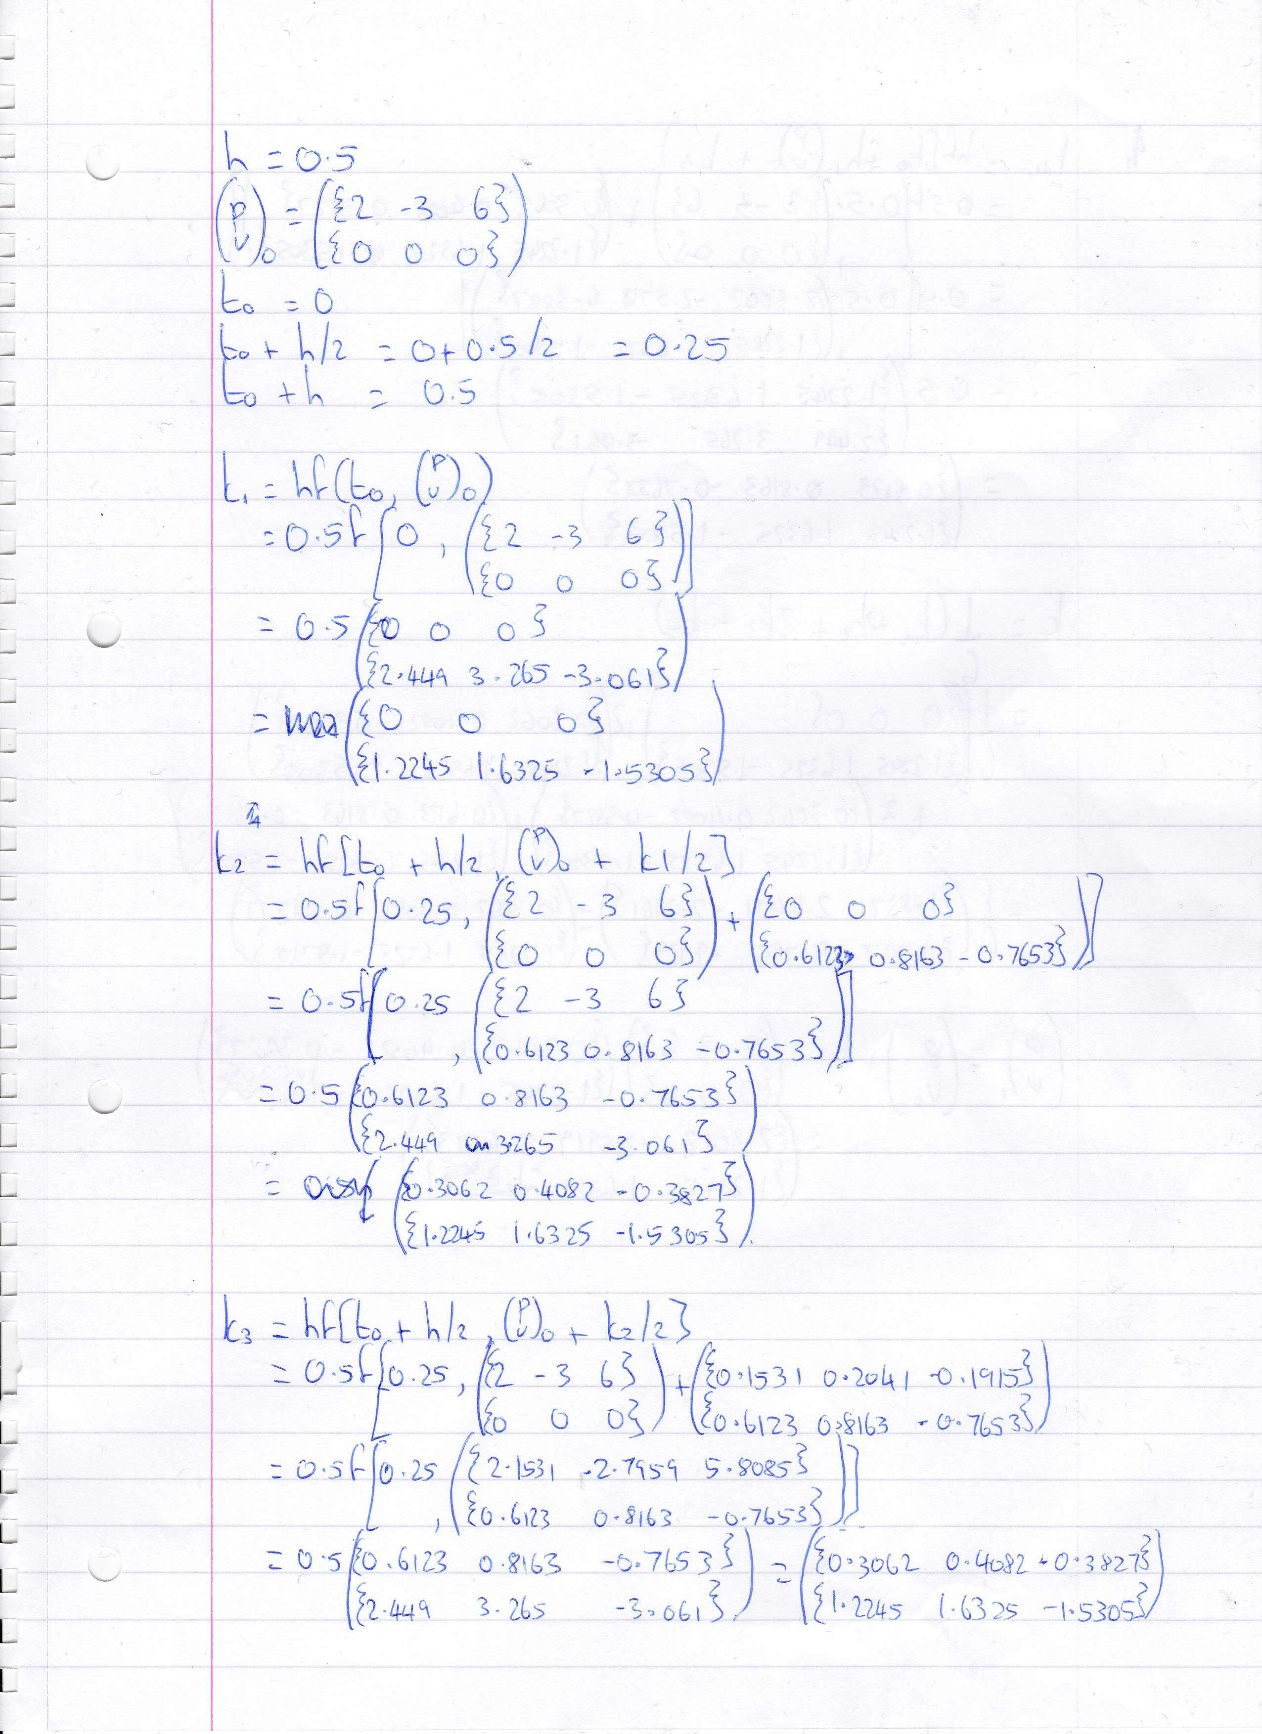 h = 0.5
(p v)₀ = ({2 -3 6} {0 0 0})
t₀ = 0
t₀ + h/2 = 0+0.5/2 = 0.25
t₀ + h = 0.5
k₁ = hf(t₀, (p v)₀)
= 0.5f[0, ({2 -3 6} {0 0 0})]
= 0.5({0 0 0} {2.449 3.265 -3.061})
= ({0 0 0} {1.2245 1.6325 -1.5305})
k₂ = hf[t₀ + h/2, (p v)₀ + k1/2]
= 0.5f[0.25, ({2 -3 6} {0 0 0}) + ({0 0 0} {0.6123 0.8163 -0.7653})]
= 0.5f[0.25, ({2 -3 6} {0.6123 0.8163 -0.7653})]
= 0.5({0.6123 0.8163 -0.7653} {2.449 3.265 -3.061})
= ({0.3062 0.4082 -0.3827} {1.2245 1.6325 -1.5305})
k₃ = hf[t₀ + h/2, (p v)₀ + k₂/2]
= 0.5f[0.25, ({2 -3 6} {0 0 0}) + ({0.1531 0.2041 -0.1915} {0.6123 0.8163 -0.7653})
= 0.5f[0.25, ({2.1531 -2.7959 5.8085} {0.6123 0.8163 -0.7653})]
= 0.5({0.6123 0.8163 -0.7653} {2.449 3.265 -3.061}) = ({0.3062 0.4082 -0.3827} {1.2245 1.6325 -1.5305})